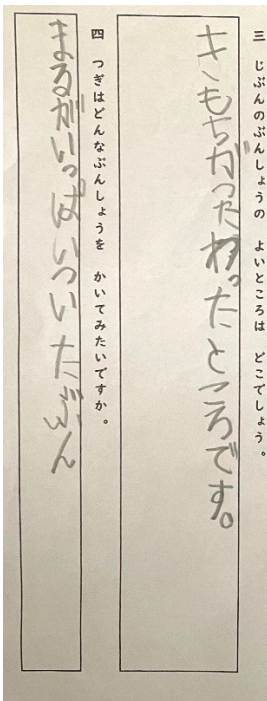 三 じぶんのぶんしょうの よいところは どこでしょう。
きもちがつたわったところです。
四 つぎはどんなぶんしょうを かいてみたいですか。
まるがいっぱいついたぶん